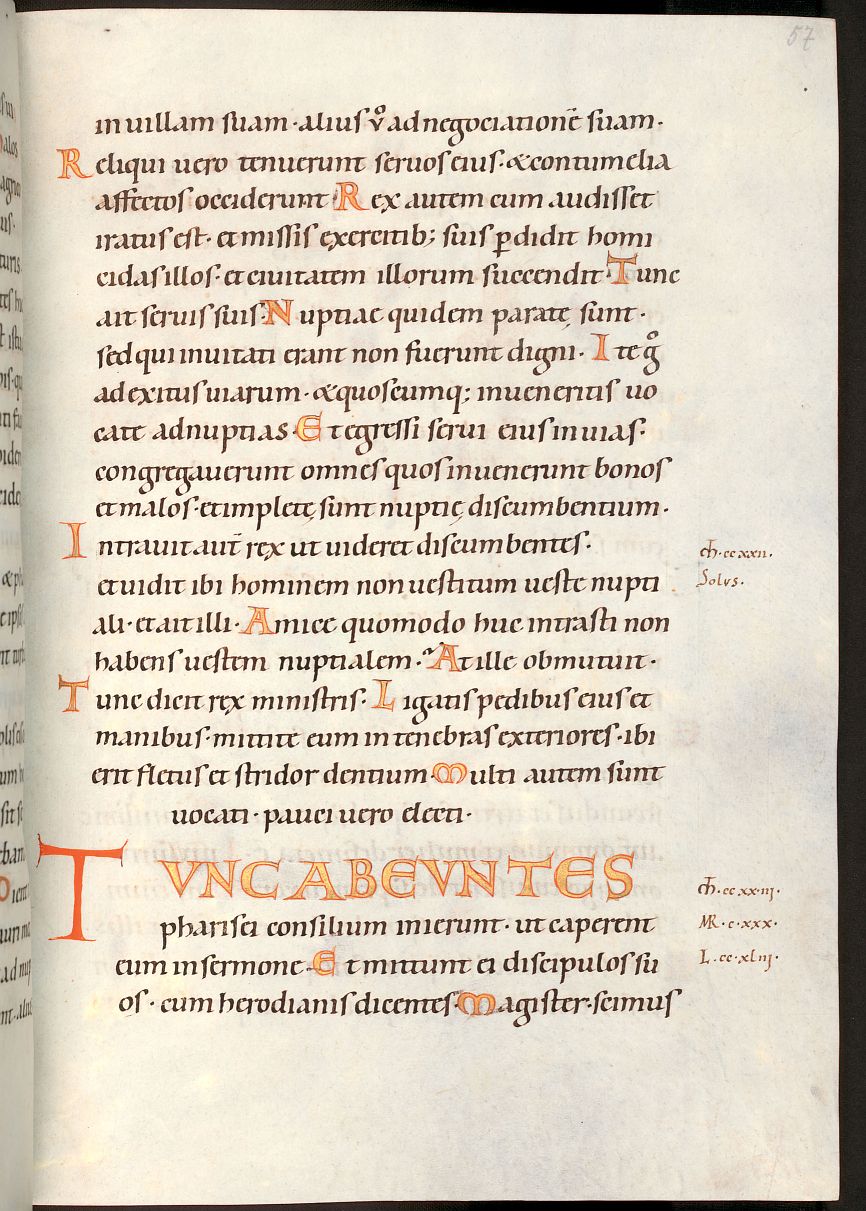 57
in uillam suam · alius v̊ ad negociationē suam ·
Reliqui uero tenuerunt seruos eius · & contumelia
affectos occiderunt · Rex autem cum audisset
iratus est · et missis exercitib; suis ꝑdidit homi
cidas illos · et ciuitatem illorum succendit · Tunc
ait seruis suis · Nuptiae quidem paratę sunt ·
sed qui inuitati erant non fuerunt digni · Ite g̊
ad exitus uiarum · & quoscumq; inueneritis uo
cate ad nuptias · Et egressi serui eius in uias ·
congregauerunt omnes quos inuenerunt bonos
et malos · et impletę sunt nuptię discumbentium ·
Intrauit aut̄ rex ut uideret discumbentes ·
et uidit ibi hominem non uestitum ueste nupti
ali · et ait illi · Amice quomodo huc intrasti non
habens uestem nuptialem · At ille obmutuit ·
Tunc dicit rex ministris · Ligatis pedibus eius et
manibus · mittite eum in tenebras exteriores · ibi
erit fletus et stridor dentium · Multi autem sunt
uocati · pauci uero electi ·
TVNC ABEVNTES
pharisei consilium inierunt · ut caperent
eum in sermone · Et mittunt ei discipulos su
os · cum herodianis dicentes · Magister · scimus
cħ · ccxxii ·
Solus ·
cħ · ccxxiij ·
MR · c · xxx ·
L · cc · xliij ·